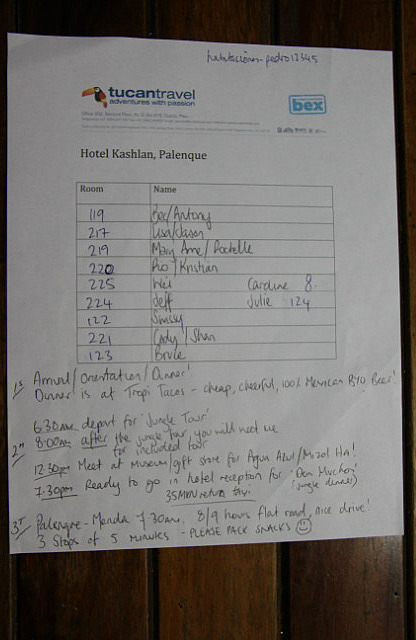 habitaciones - pedro12345
tucantravel
adventures with passion
bex
Hotel Kashlan, Palenque
Room Name
119 Bec/Antony
217 Lisa/Jason
219 Mary Anne/Rochelle
220 Ro/Kristian
225 Wil Caroline 8.
224 Jeff Julie 124
122 Sinssy
221 Cady/Shan
123 Bruce
1st Arrival/Orientation/Dinner!
Dinner is at Tropi Tacos - cheap, cheerful, 100% Mexican BYO Beer!
6.30am depart for 'Jungle Tour'
2nd 8:00am after the jungle tour, you will meet me
for included tour
12:30pm Meet at Museum/gift store for Agua Azul/Misol Ha!
7.30pm Ready to go in hotel reception for 'Don Muchos'
35MXN return taxi (jungle dinner)
3rd Palenque - Merida 7.30am. 8/9 hours flat road, nice drive!
3 stops of 5 minutes - PLEASE PACK SNACKS